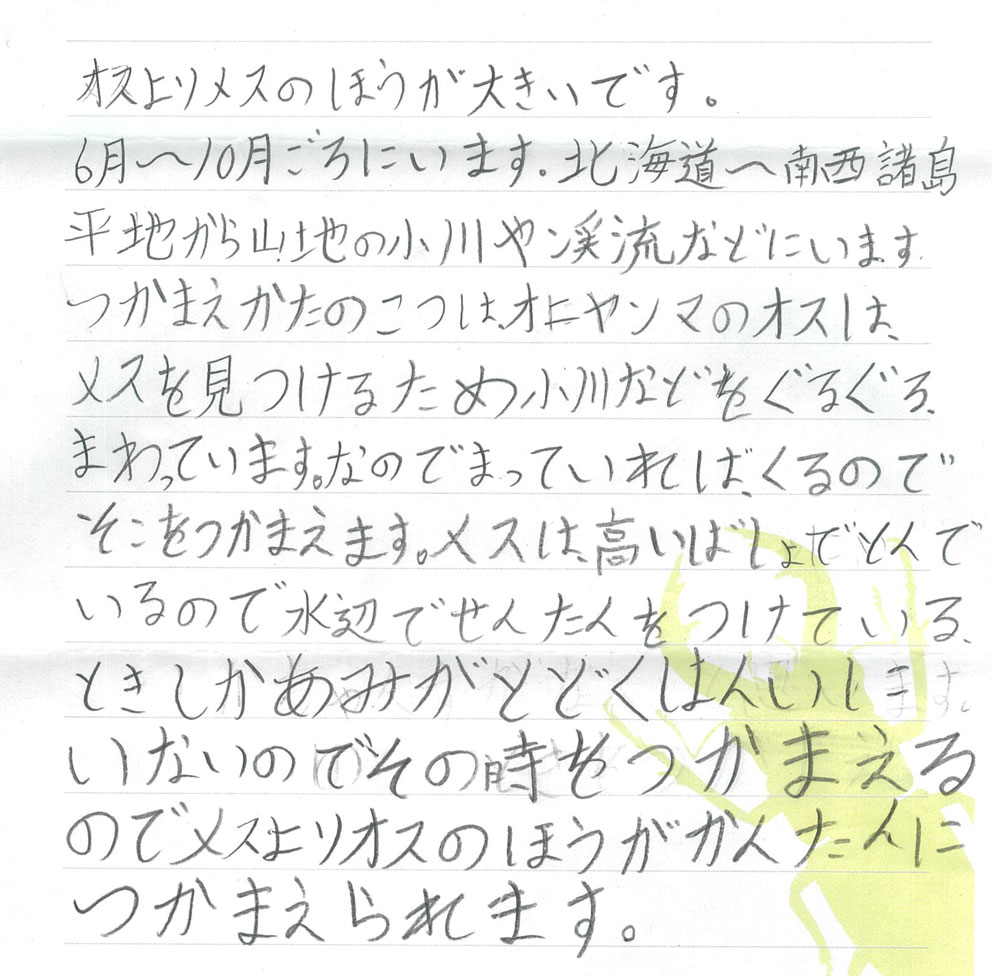 オスよりメスのほうが大きいです。
6月〜10月ごろにいます.北海道〜南西諸島
平地から山地の小川や渓流などにいます.
つかまえかたのこつは、オニヤンマのオスは、
メスを見つけるため小川などをぐるぐる、
まわっています。なのでまっていれば、くるので
そこをつかまえます。メスは、高いばしょでとんで
いるので水辺でせんたんをつけている、
ときしかあみがとどくはんいに
いないのでその時をつかまえる
のでメスよりオスのほうがかんたんに
つかまえられます。